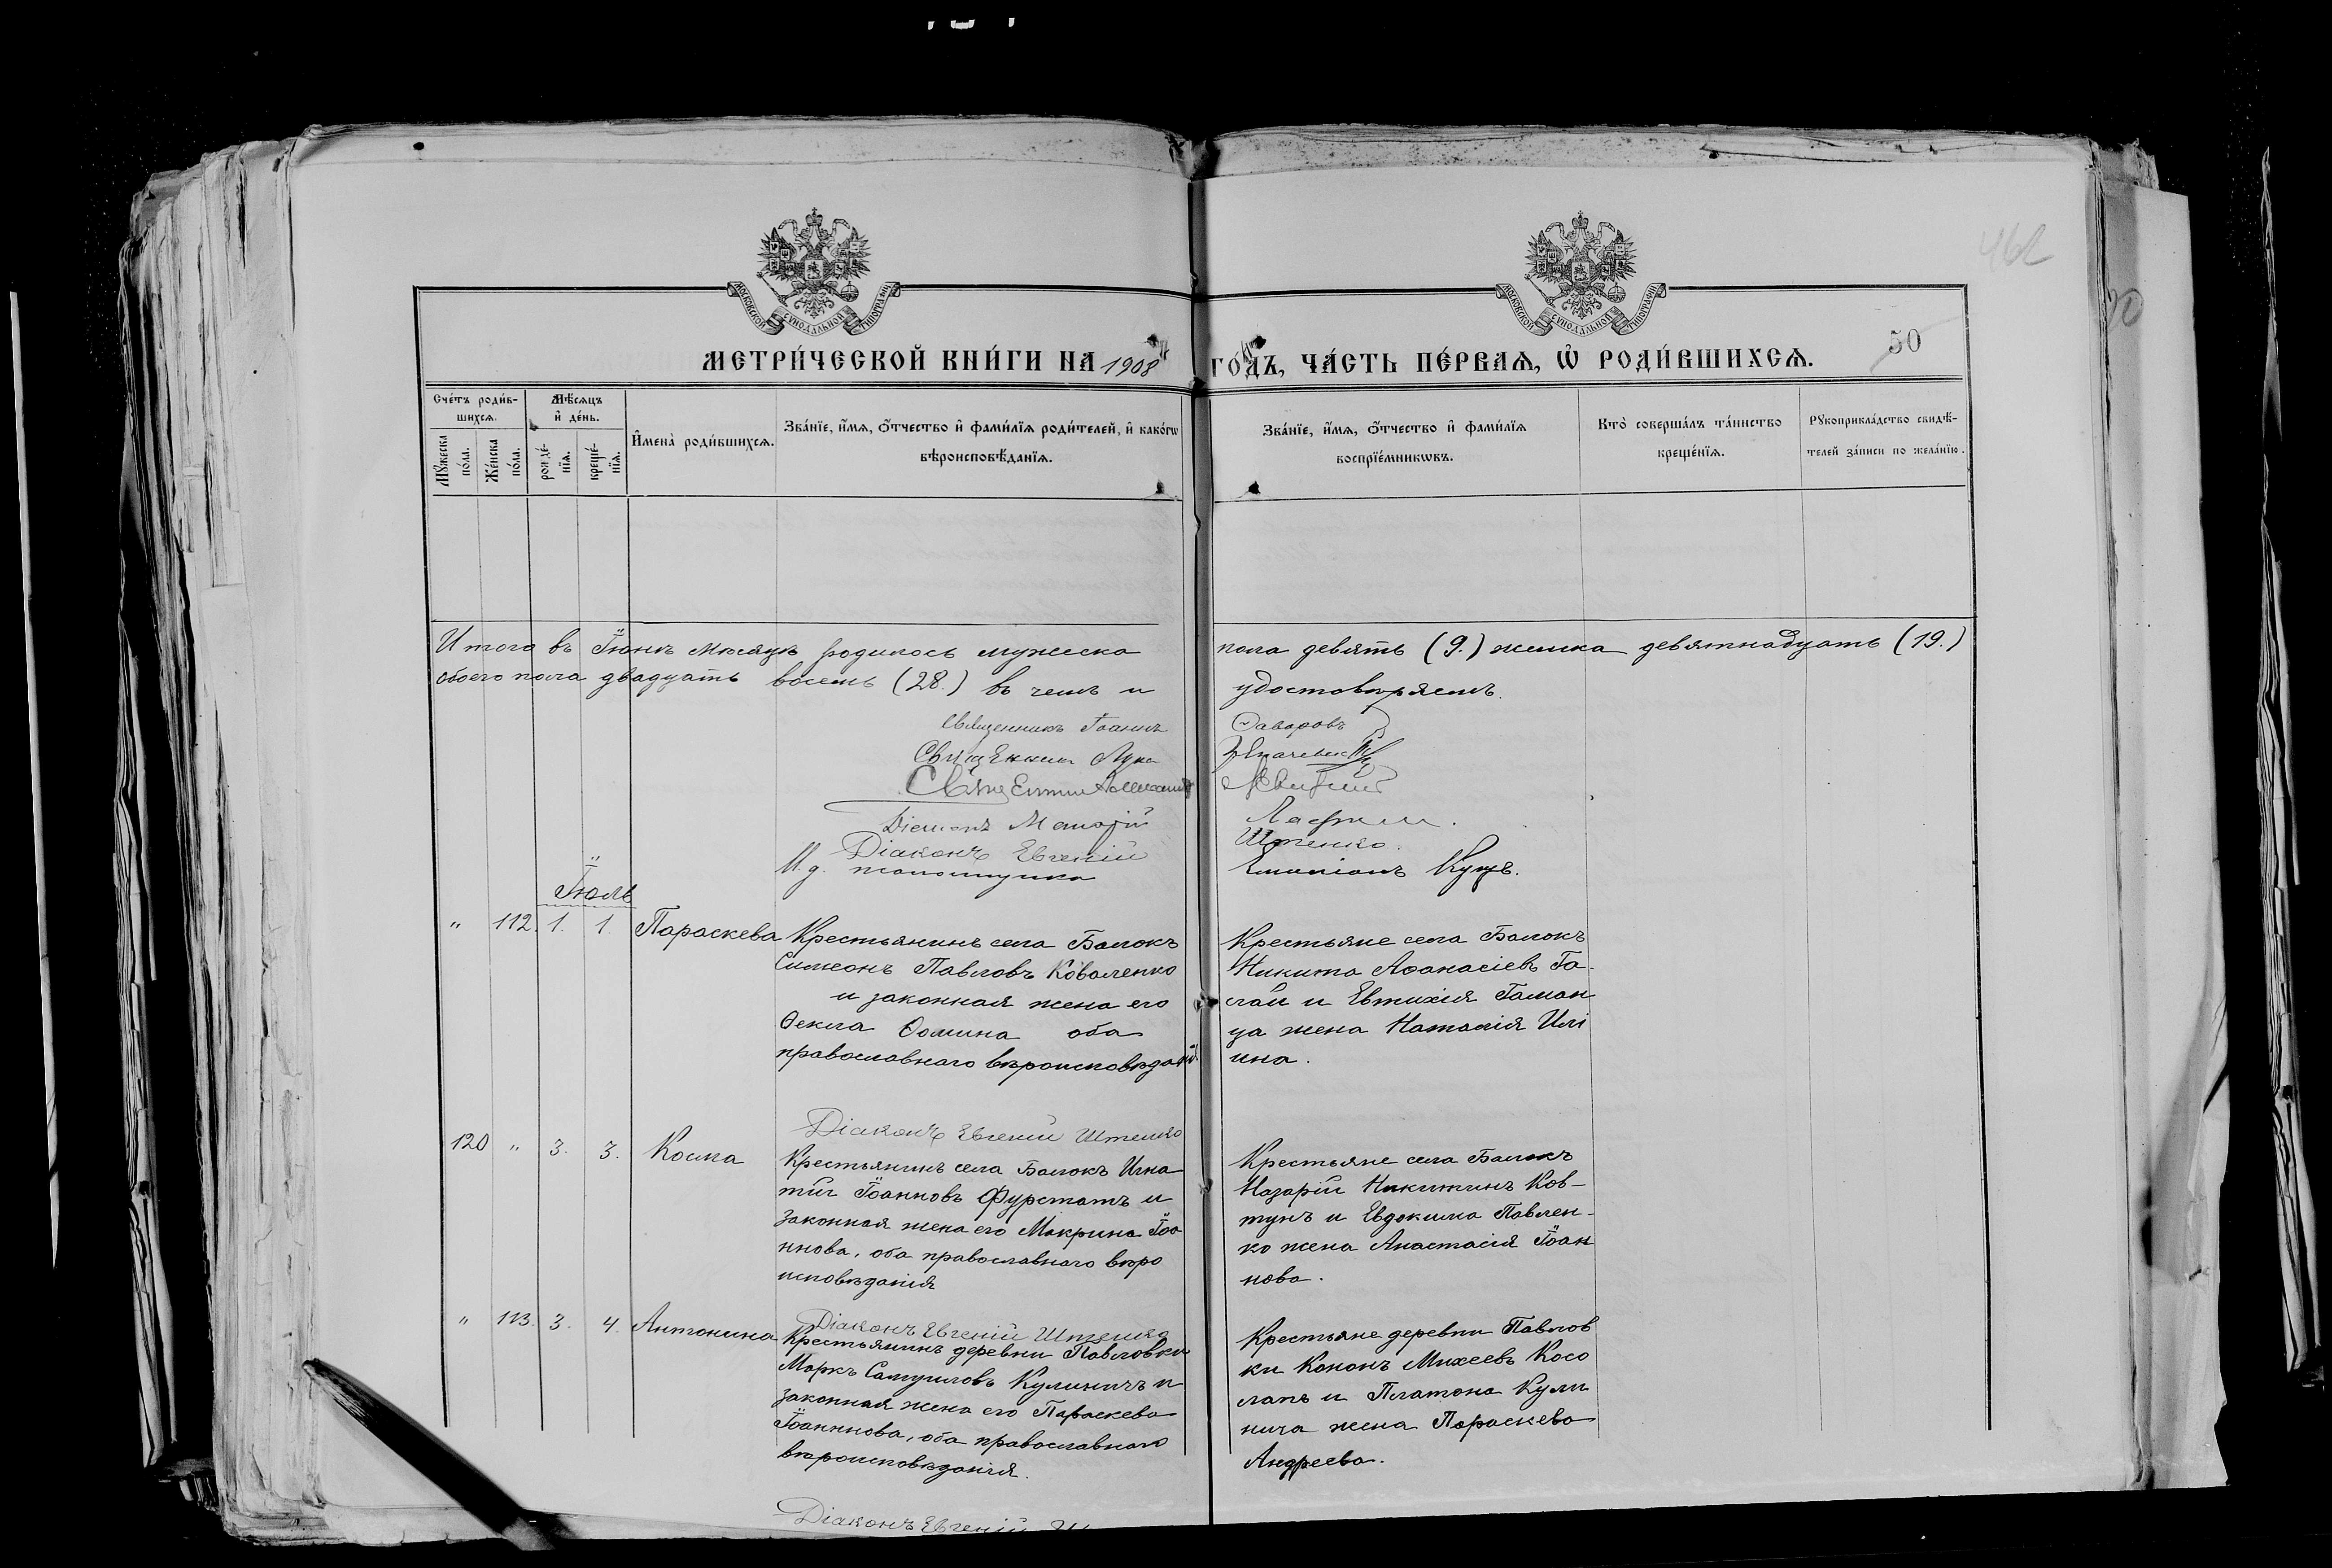 462
МОСКОВСКОЙ СѴНОДАЛЬНОЙ ТИПОГРАФІИ
МОСКОВСКОЙ СѴНОДАЛЬНОЙ ТИПОГРАФІИ
50
МЕТРИ́ЧЕСКОЙ КНИ́ГИ НА 1908 ГО́ДЪ, ЧА́СТЬ ПЕ́РВАѦ, Ѡ҆ РОДИ́ВШИХСѦ.
Сче́тъ роди́в-
шихсѧ.
Мꙋ́жеска
по́ла.
Же́нска
по́ла.
Мѣ́сѧцъ
и҆ де́нь.
рожде́-
нїѧ.
креще́-
нїѧ.
И҆мена̀ роди́вшихсѧ.
Зва́нїе, и҆́мѧ, ѻ҆́тчество и҆ фами́лїѧ роди́телей, и҆ како́гѡ
вѣроисповѣ́данїѧ.
Зва́нїе, и҆́мѧ, ѻ҆́тчество и҆ фами́лїѧ
воспрїе́мникѡвъ.
Кто̀ соверша́лъ та́инство
креще́нїѧ.
Рꙋкоприкла́дство свидѣ́-
телей за́писи по жела́нїю.
Итого въ Іюнѣ мѣсяцѣ родилось мужеска пола девять (9.) женска девятнадцать (19.)
обоего пола двадцать восемь (28.) въ чемъ и удостовѣряемъ.
Священникъ Іоаннъ
Священникъ Лука
Священникъ Александръ
Діаконъ
Діаконъ Евгеній Штенко.
И. д. псаломщика Емиліанъ Куцъ.
Іюль
" 112. 1. 1. Параскева
Крестьянинъ села Балокъ
Симеонъ Павловъ Коваленко
и законная жена его
Ѳекла Ѳомина оба
православнаго вѣроисповѣданія.
Крестьяне села Балокъ
Никита Аѳанасіевъ Га-
лай и Евтихія Гаман
ца жена Наталія Илі
ина.
Діаконъ Евгеній Штенко
120 " 3. 3. Косма
Крестьянинъ села Балокъ Игна
тій Іоанновъ Фурстатъ и
законная жена его Макрина Іоа
ннова, оба православнаго вѣро
исповѣданія
Крестьяне села Балокъ
Назарій Никитинъ Ков-
тунъ и Евдокима Павлен-
ко жена Анастасія Іоан
нова.
Діаконъ Евгеній Штенко
" 113. 3. 4. Антонина
Крестьянинъ деревни Павловки
Маркъ Самуиловъ Кулиничъ и
законная жена его Параскева
Іоаннова, оба православнаго
вѣроисповѣданія.
Крестьяне деревни Павлов
ки Кононъ Михеевъ Косо
лапъ и Платона Кули
нича жена Параскева
Андреева.
Діаконъ Евгеній Ш